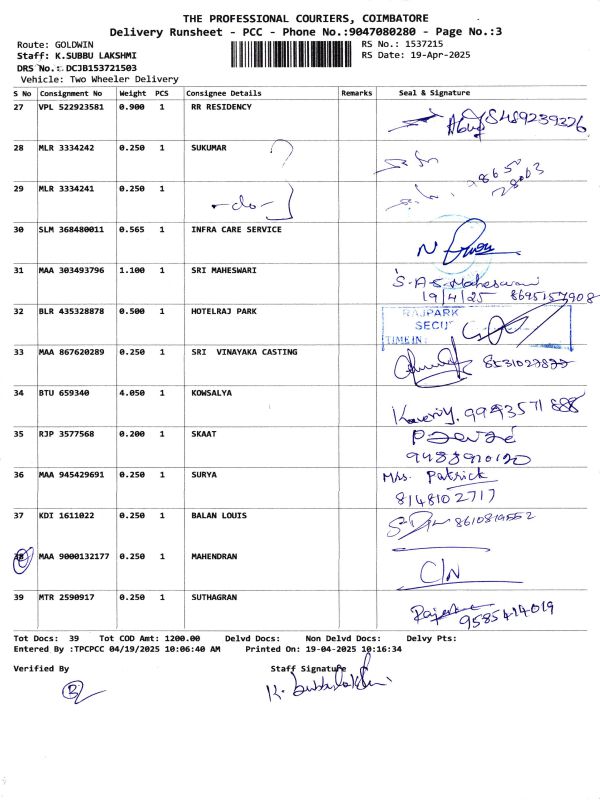 THE PROFESSIONAL COURIERS, COIMBATORE
Delivery Runsheet - PCC - Phone No.:9047080280 - Page No.:3
Route: GOLDWIN RS No.: 1537215
Staff: K.SUBBU LAKSHMI RS Date: 19-Apr-2025
DRS No.: DCJB153721503
Vehicle: Two Wheeler Delivery
S No Consignment No Weight PCS Consignee Details Remarks Seal & Signature
27 VPL 522923581 0.900 1 RR RESIDENCY
28 MLR 3334242 0.250 1 SUKUMAR
29 MLR 3334241 0.250 1 -do-
30 SLM 368480011 0.565 1 INFRA CARE SERVICE
31 MAA 303493796 1.100 1 SRI MAHESWARI S.A.S. Maheswari
19/4/25 8695157908
32 BLR 435328878 0.500 1 HOTELRAJ PARK RAJPARK
SECU
TIME IN:
33 MAA 867620289 0.250 1 SRI VINAYAKA CASTING
34 BTU 659340 4.050 1 KOWSALYA
35 RJP 3577568 0.200 1 SKAAT
36 MAA 945429691 0.250 1 SURYA Mrs. Patrick
8148102717
37 KDI 1611022 0.250 1 BALAN LOUIS 8610819552
38 MAA 9000132177 0.250 1 MAHENDRAN C/N
39 MTR 2590917 0.250 1 SUTHAGRAN 9585414019
Tot Docs: 39 Tot COD Amt: 1200.00 Delvd Docs: Non Delvd Docs: Delvy Pts:
Entered By :TPCPCC 04/19/2025 10:06:40 AM Printed On: 19-04-2025 10:16:34
Verified By Staff Signature
K. Subbulakshmi